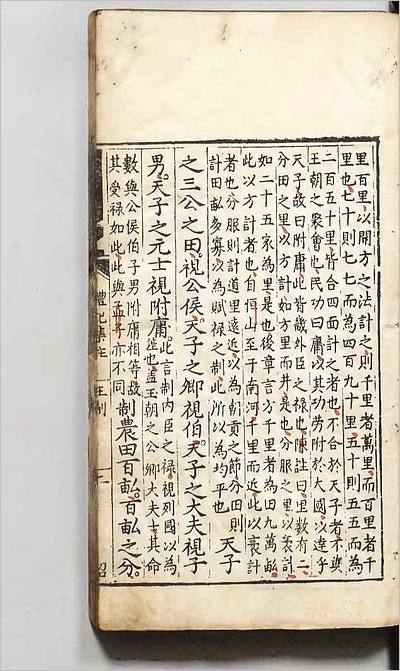 里百里以開方之法計之則千里者萬里而百里者千
里也七十則七七而為四百九十里五十則五五而為
二百五十里皆合四面計之者也不合於天子者不與
王朝之聚會也民功曰庸以其功勞附於大國以達乎
天子故曰附庸此皆畿外臣之祿也陳註曰里數有二
分田之里以方計如方里而井是也分服之里以袤計
如二十五家為里是也後章言方千里者為田九萬畝
此以方計者也自恒山至于南河千里而近此以袤計
者也分服則計道里遠近以為朝貢之節分田則
計田畝多寡以為賦祿之制此所以為均平也 天子
之三公之田視公侯天子之卿視伯天子之大夫視子
男天子之元士視附庸此言制內臣之祿視列國以為
進也盖王朝之公卿大夫士其命
數與公侯伯子男附庸相等故
其受祿如此此與孟子亦不同 制農田百畝百畝之分
禮記集註 王制 二